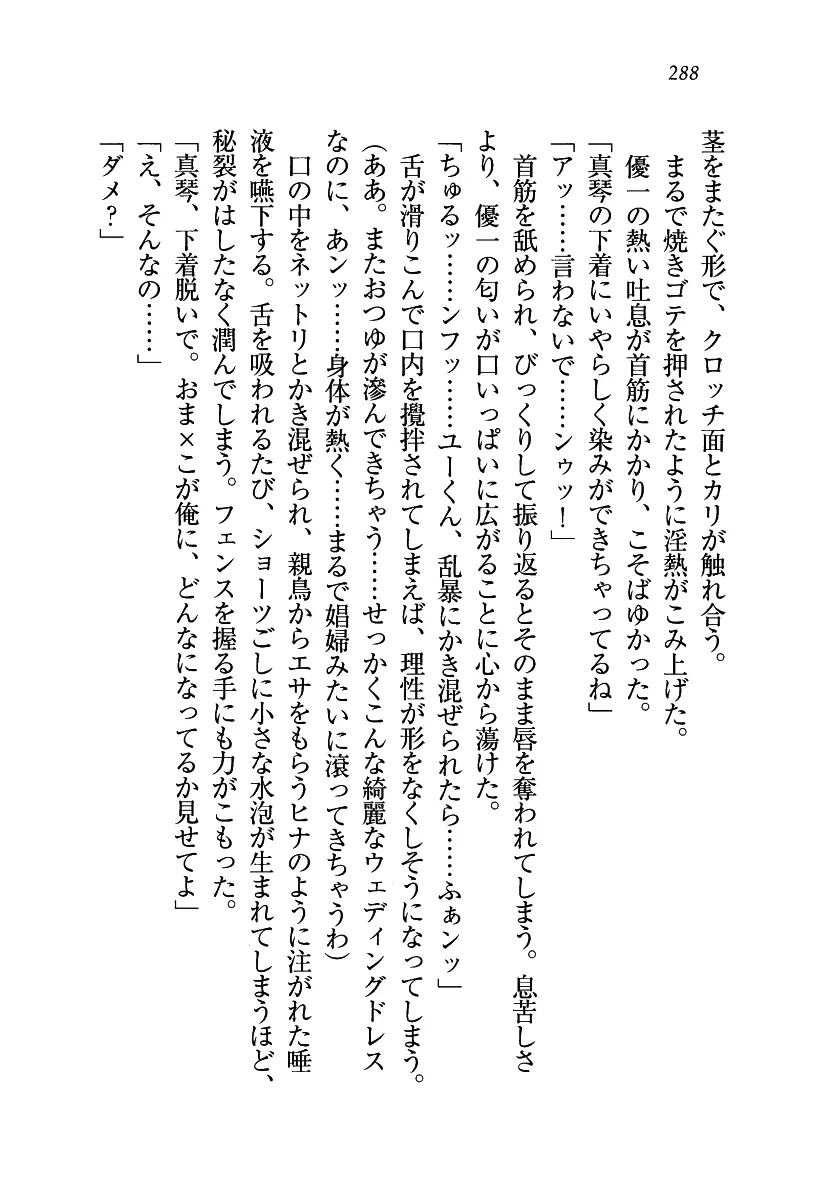 288
茎をまたぐ形で、クロッチ面とカリが触れ合う。
まるで焼きゴテを押されたように淫熱がこみ上げた。
優一の熱い吐息が首筋にかかり、こそばゆかった。
「真琴の下着にいやらしく染みができちゃってるね」
「アッ……言わないで……ンゥッ！」
首筋を舐められ、びっくりして振り返るとそのまま唇を奪われてしまう。息苦しさ
より、優一の匂いが口いっぱいに広がることに心から蕩けた。
「ちゅるッ……ンフッ……ユーくん、乱暴にかき混ぜられたら……ふぁンッ」
舌が滑りこんで口内を攪拌されてしまえば、理性が形をなくしそうになってしまう。
(ああ。またおつゆが滲んできちゃう……せっかくこんな綺麗なウェディングドレス
なのに、あンッ……身体が熱く……まるで娼婦みたいに滾ってきちゃうわ)
口の中をネットリとかき混ぜられ、親鳥からエサをもらうヒナのように注がれた唾
液を嚥下する。舌を吸われるたび、ショーツごしに小さな水泡が生まれてしまうほど、
秘裂がはしたなく潤んでしまう。フェンスを握る手にも力がこもった。
「真琴、下着脱いで。おま×こが俺に、どんなになってるか見せてよ」
「え、そんなの……」
「ダメ？」